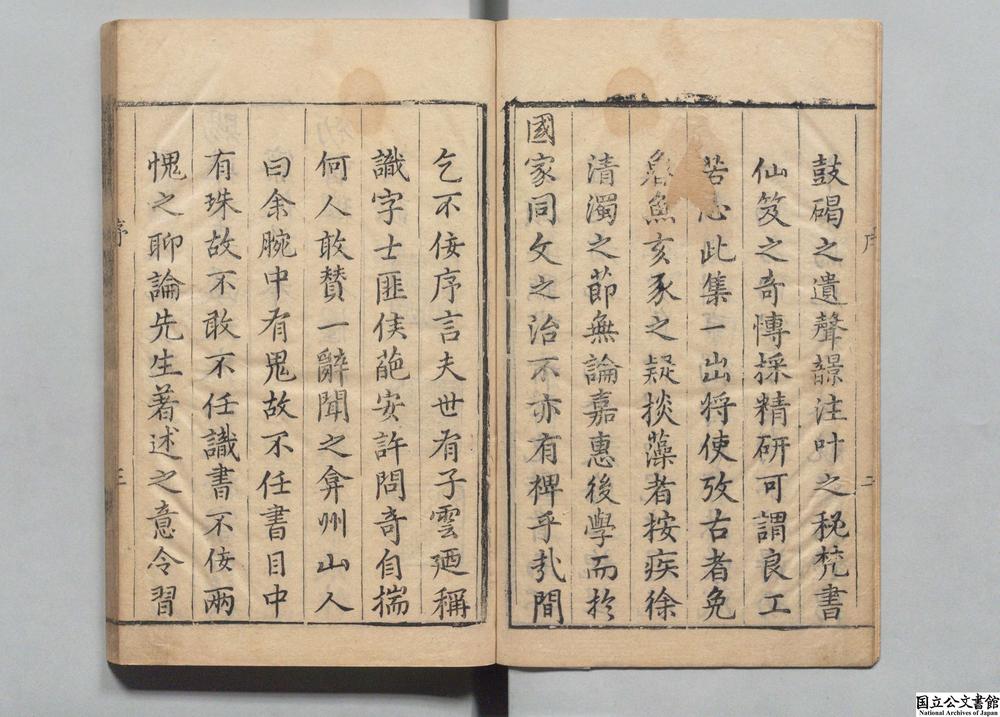 鼓碣之遺聲譿注叶之秘梵書
仙笈之奇愽採精研可謂良工
苦心此集一出将使攷古者免
魯魚亥豕之疑掞藻者按疾徐
清濁之莭無論嘉惠後學而扵
國家同文之治不亦有裨乎㧞間
乞不佞序言夫世有子雲廼稱
識字士匪侯葩安許問奇自揣
何人敢贊一辭聞之弇州山人
曰余腕中有鬼故不任書目中
有珠故不敢不任識書不佞兩
愧之聊論先生著述之意令習
序
二
序
三
国立公文書館
National Archives of Japan